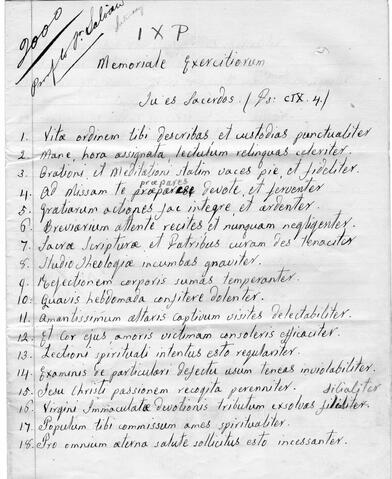 2000
I X P
Memoriale Exercitiorum
Tu es Sacerdos. (Ps: CIX. 4.)
1. Vitæ ordinem tibi describas et custodias punctualiter
2. Mane, hora assignata, lectulum relinquas celeriter.
3. Orationi, et Meditationi statim vaces pie, et fideliter.
præpares
4. Ad Missam te devote, et ferventer
5. Gratiarum actiones fac integre, et ardenter.
6. Breviarium attente recites et nunquam negligenter.
7. Sacræ Scripturæ et Patribus curam des tenaciter
8. Studio Theologiæ incumbas gnaviter.
9. Refectionem corporis sumas temperanter.
10. Quavis hebdomada confitere dolenter.
11. Amantissimum altaris captivum visites delectabiliter.
12. Et Cor ejus amoris victimam consoleris efficaciter.
13. Lectioni spirituali intentus esto regulariter.
14. Examinis de particulari defectu usum teneas inviolabiliter.
15. Jesu Christi passionem recogita perenniter.
filialiter
16. Virgini Immaculatæ devotionis tributum exsolvas
17. Populum tibi commissum ames spiritualiter.
18. Pro omnium æterna salute sollicitus esto incessanter.